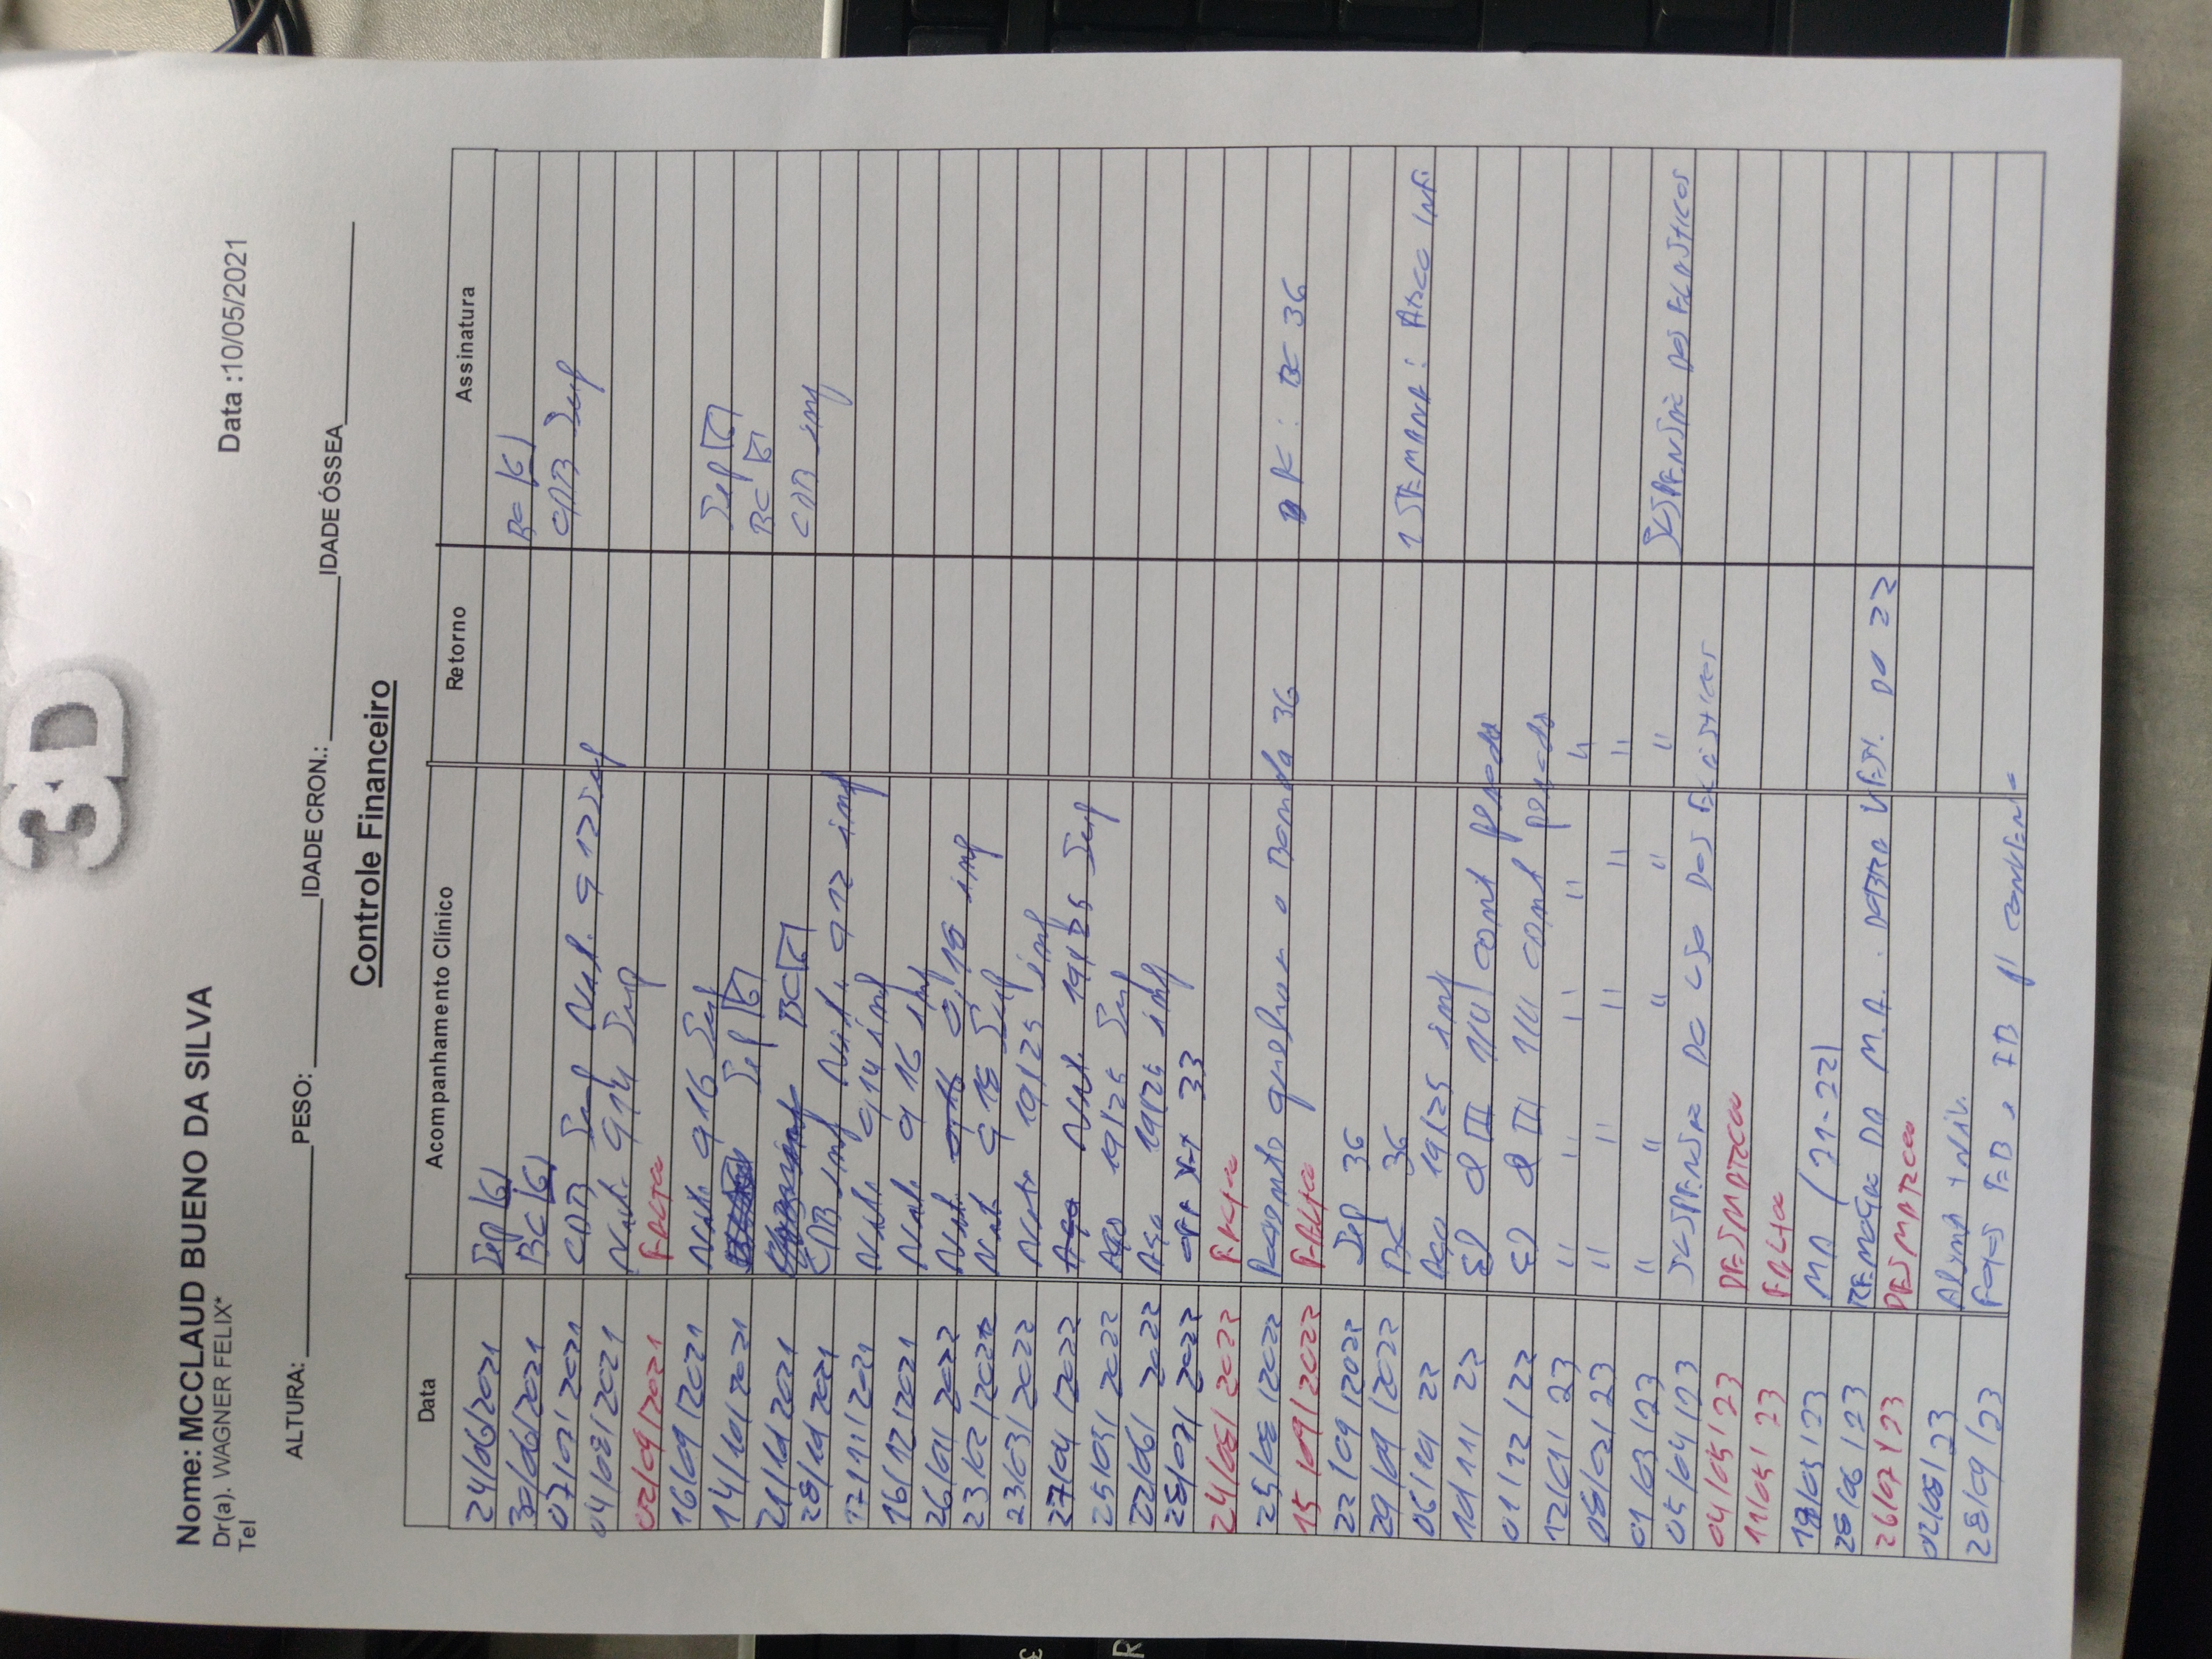 3D
Nome: MCCLAUD BUENO DA SILVA
Data :10/05/2021
Dr(a). WAGNER FELIX*
Tel
ALTURA: PESO: IDADE CRON.: IDADE ÓSSEA
Controle Financeiro
Data Acompanhamento Clínico Retorno Assinatura
24/06/2021 Sep 6 BC 6
30/06/2021 BC 6 CDB Sup
07/07/2021 CDB Sup Nist. 912 Sup
04/08/2021 Nist. 914 Sup
02/09/2021 FALTA
16/09/2021 Nist. 916 Sup Sep 6
14/10/2021 Sep 6 BC 6
21/10/2021 BC 6 CDB inf
28/10/2021 CDB inf Nist. 912 inf
17/11/2021 Nist. 914 inf
16/12/2021 Nist. 916 inf
26/01/2022 Nist. 918 inf
23/02/2022 Nist. 918 Sup
23/03/2022 Nist. 19/25 inf
27/04/2022 Nist. 19/25 Sup
25/05/2022 Aço 19/25 Sup
22/06/2022 Aço 19/25 inf
28/07/2022 33
24/08/2022 FALTA
25/08/2022 Paciente quebrou a Banda 36 BC 36
15/09/2022 FALTOU
22/09/2022 Sep 36
29/09/2022 BC 36 1 SEMANA: ARCO INF.
06/10/22 Aço 19/25 inf
10/11/22 El III 1/4 cont pesado
01/12/22 El III 1/4 cont pesado
12/01/23 " " " " "
08/02/23 " " " " "
01/03/23 " " " " " SUSPENSÃO DOS ELÁSTICOS
05/04/23 SUSPENSÃO DO USO DOS ELÁSTICOS
04/05/23 DESMARCOU
11/05/23 FALTOU
18/05/23 MA (21-22)
28/06/23 REMOÇÃO DA M.A. DOBRA VEST. DO 22
26/07/23 DESMARCOU
02/08/23 Alinha + Niv.
28/09/23 FOTOS
3
R